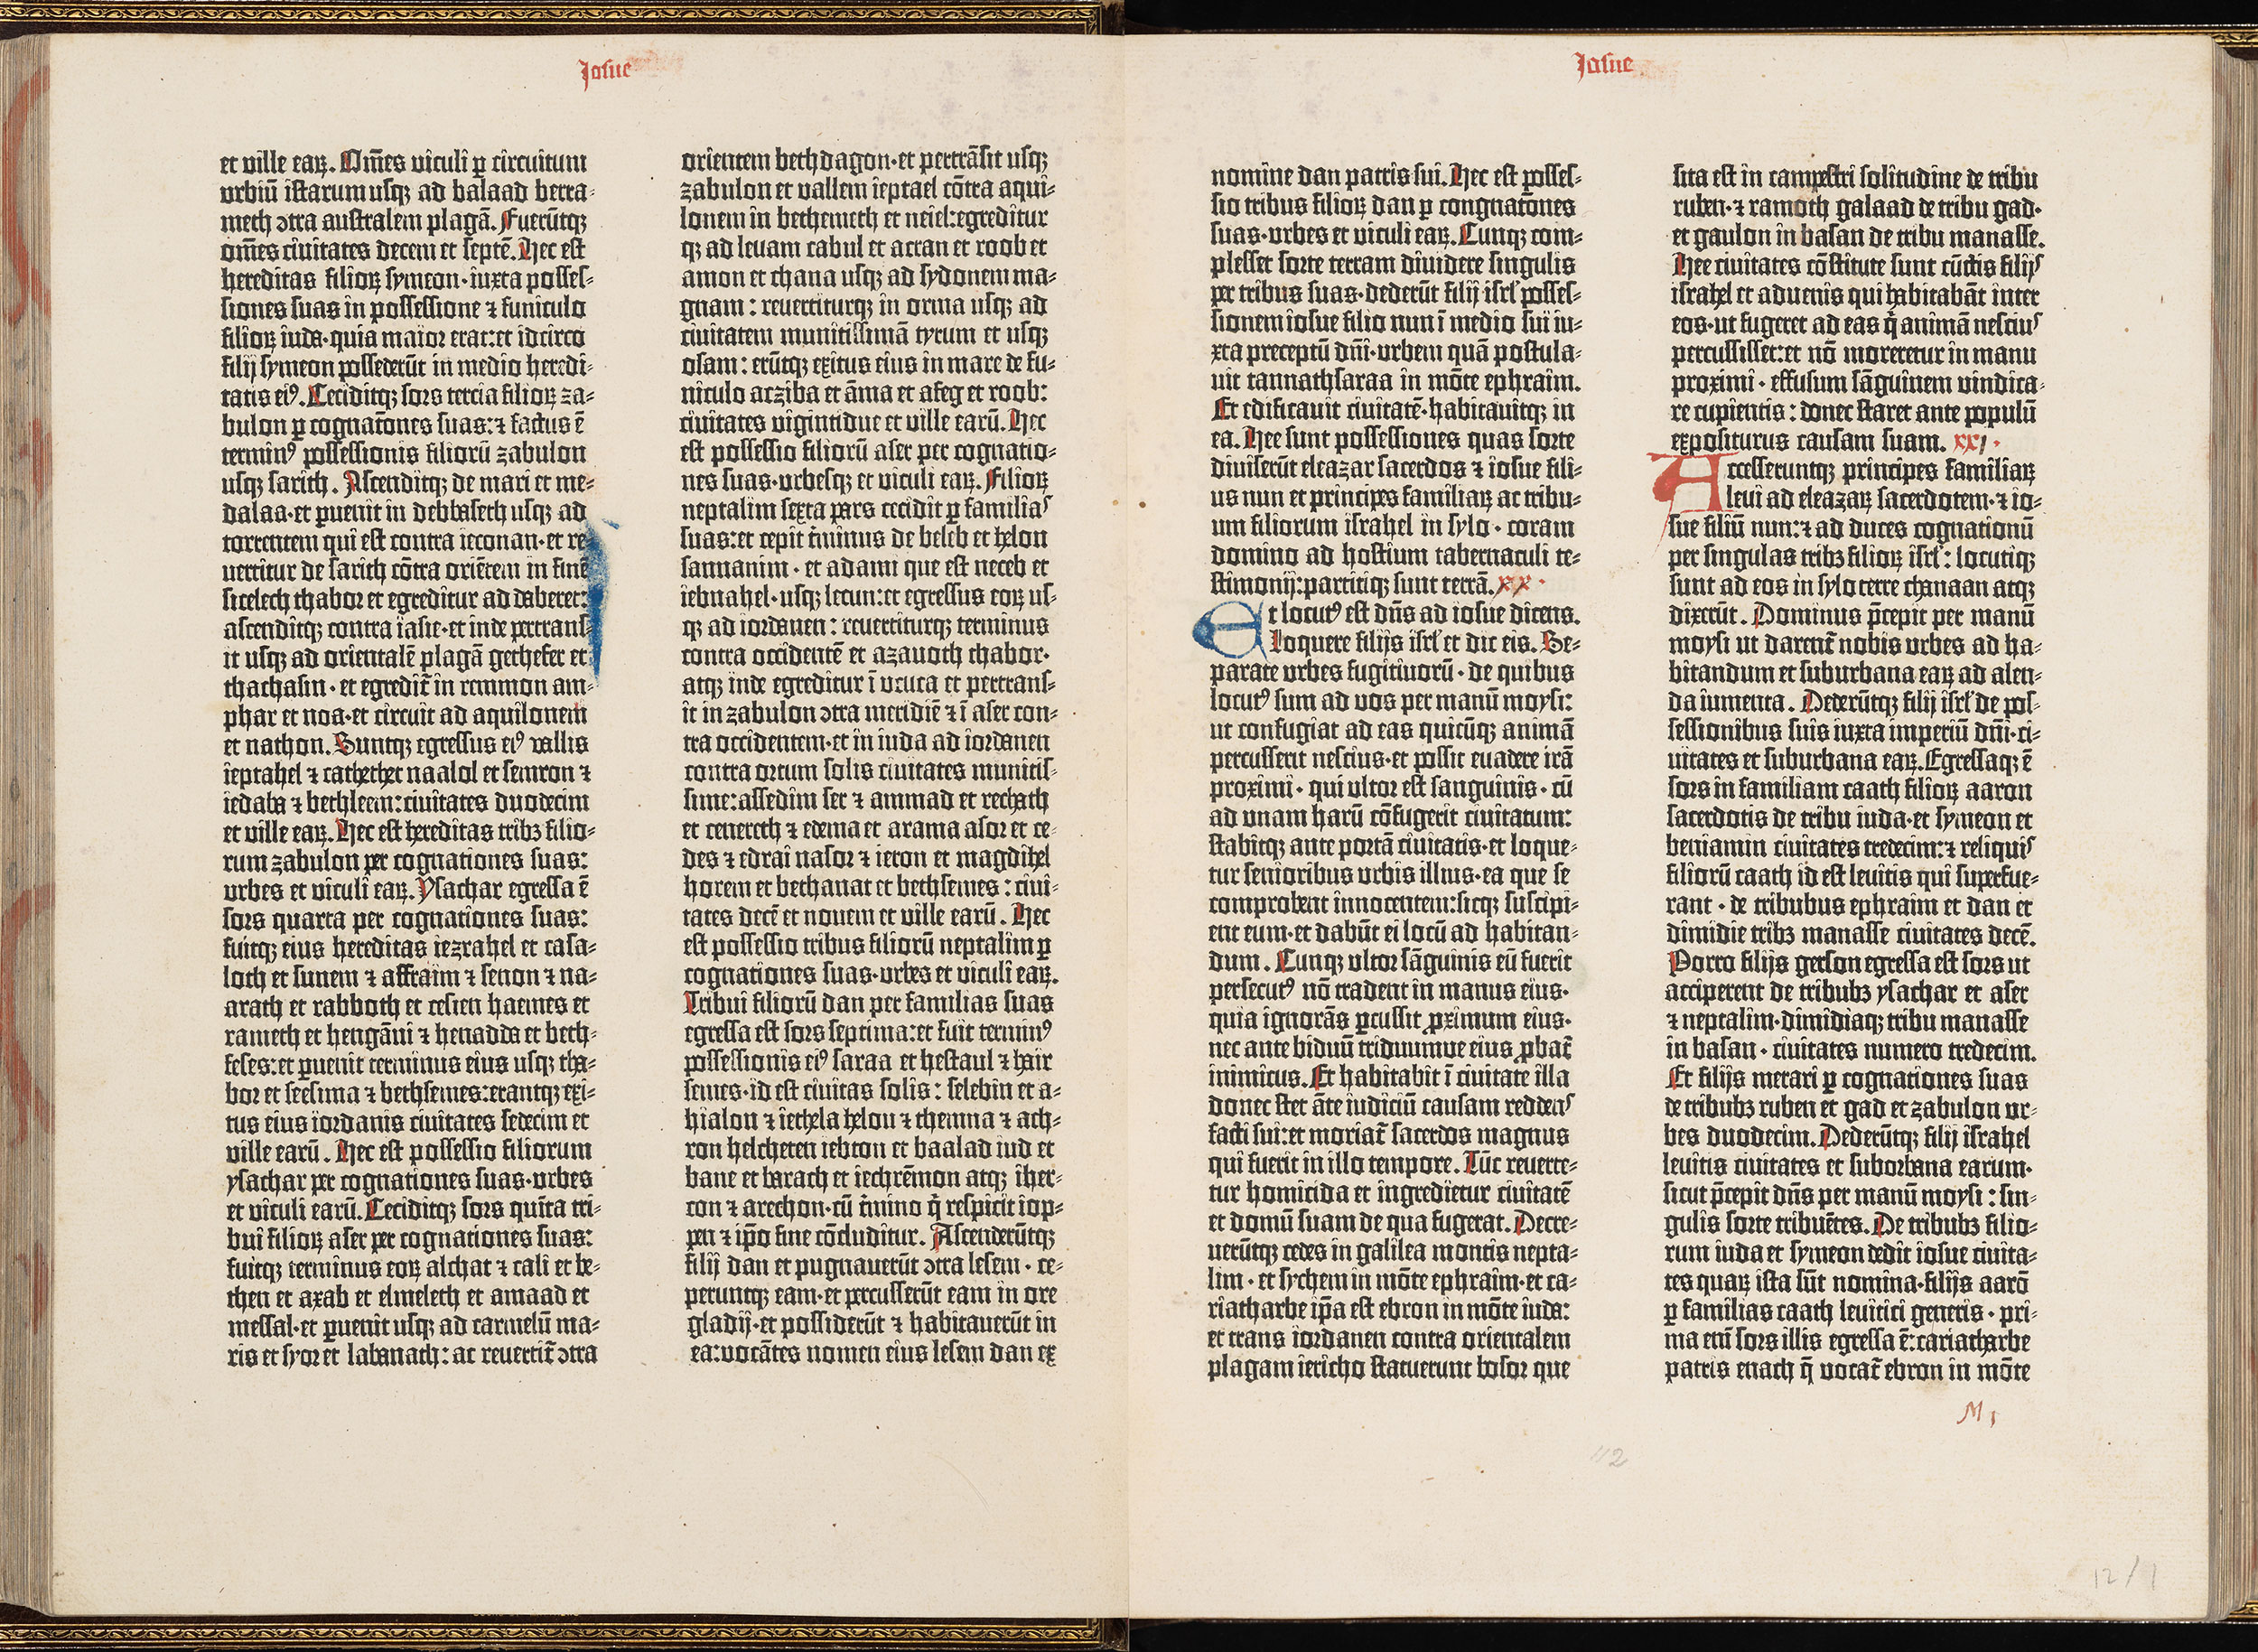 Josue
et ville earꝝ. Om̄es viculi ꝑ circuitum
vrbiū istarum usqꝫ ad balaad berra-
meth ↄtra australem plagā. Fuerūtqꝫ
om̄es civitates decem et septē. Hec est
hereditas filioꝝ symeon·iuxta posses-
siones suas in possessione ⁊ funiculo
filioꝝ iuda·quia maior erat:et idcirco
filij symeon possederūt in medio heredi-
tatis eiꝰ. Ceciditqꝫ sors tercia filioꝝ za-
bulon ꝑ cognatōnes suas:⁊ factus ē
terminꝰ possessionis filiorū zabulon
usqꝫ sarith. Ascenditqꝫ de mari et me-
dalaa·et ꝑuenit in debbasech usqꝫ ad
torrentem qui est contra ieconan·et re-
uertitur de sarith cōtra oriētem in fines
sicelech thabor et egreditur ad daberet:
ascenditqꝫ contra iasie·et inde pertrans-
it usqꝫ ad orientalē plagā gethefer et
thachasin·et egredit̄ in remmon am-
phar et noa·et circuit ad aquilonem
et nathon. Suntqꝫ egressus eiꝰ vallis
ieptahel ⁊ cathethet naalol et semron ⁊
iedaba ⁊ bethleem:ciuitates duodecim
et ville earꝝ. Hec est hereditas tribꝫ filio-
rum zabulon per cognationes suas:
vrbes et viculi earꝝ. Ysachar egressa ē
sors quarta per cognationes suas:
fuitqꝫ eius hereditas iezrahel et casa-
loth et sunem ⁊ affraim ⁊ senon ⁊ na-
arath et rabboth et cesien haemes et
rameth et hengāni ⁊ henadda et beth-
feses:et ꝑuenit terminus eius usqꝫ tha-
bor et seesima ⁊ bethsemes:erantqꝫ exi-
tus eius iordanis ciuitates sedecim et
ville earū. Hec est possessio filiorum
ysachar per cognationes suas·vrbes
et viculi earū. Ceciditqꝫ sors quīta tri-
bui filioꝝ aser per cognationes suas:
fuitqꝫ terminus eoꝝ alchat ⁊ cali et be-
then et axab et elmelech et amaad et
messal·et ꝑuenit usqꝫ ad carmelū ma-
ris et syor et labanath:ac reuertit̄ ↄtra
orientem bethdagon·et pertrāsit usqꝫ
zabulon et vallem ieptael cōtra aqui-
lonem in bethemeth et neiel:egreditur
qꝫ ad leuam cabul et acran et roob et
amon et chana usqꝫ ad sydonem ma-
gnam: reuertiturqꝫ in orma usqꝫ ad
ciuitatem munitissimā tyrum et usqꝫ
osam: erūtqꝫ exitus eius in mare de fu-
niculo acziba et āma et afeg et roob:
ciuitates vigintidue et ville earū. Hec
est possessio filiorū aser per cognatio-
nes suas·vrbesqꝫ et viculi earꝝ. Filioꝝ
neptalim sexta pars cecidit ꝑ familias
suas:et cepit t̄minus de beleb et helon
sannanim·et adami que est neceb et
iebnahel·usqꝫ lecun:et egressus eoꝝ us-
qꝫ ad iordanen: reuertiturqꝫ terminus
contra occidentē et azanoth thabor·
atqꝫ inde egreditur ī ucuca et pertrans-
it in zabulon ↄtra meridiē ⁊ ī aser con-
tra occidentem·et in iuda ad iordanen
contra ortum solis ciuitates munitis-
sime:assedim ser ⁊ ammad et rechath
et cenereth ⁊ edema et arama asor et ce-
des ⁊ edrai nasor ⁊ ieron et magdihel
horem et bethanat et bethsemes: ciui-
tates decē et nouem et ville earū. Hec
est possessio tribus filiorū neptalim ꝑ
cognationes suas·vrbes et viculi earꝝ.
Tribui filiorū dan per familias suas
egressa est sors septima:et fuit terminꝰ
possessionis eiꝰ saraa et hestaul ⁊ hair
semes·id est ciuitas solis: selebin et a-
hialon ⁊ iethela helon ⁊ themna ⁊ ach-
ron helcheten iebton et baalad iud et
bane et barach et iechrēmon atqꝫ iher-
con ⁊ arechon·cū t̄mino q̄ respicit iop-
pen ⁊ ip̄o fine cōcluditur. Ascenderūtqꝫ
filij dan et pugnauerūt ↄtra lesem·ce-
peruntqꝫ eam·et percusserūt eam in ore
gladij·et possiderūt ⁊ habitauerūt in
ea:vocātes nomen eius lesem dan ex
Josue
nomine dan patris sui. Hec est posses-
sio tribus filioꝝ dan ꝑ congnatōnes
suas·vrbes et viculi earꝝ. Cunqꝫ com-
plesset sorte terram diuidere singulis
per tribus suas·dederūt filij isrl' posses-
sionem iosue filio nun ī medio sui iu-
xta preceptū dn̄i·vrbem quā postula-
uit tannathsaraa in mōte ephraim.
Et edificauit ciuitatē·habitauitqꝫ in
ea. Hee sunt possessiones quas sorte
diuiserūt eleazar sacerdos ⁊ iosue fili-
us nun et principes familiaꝝ ac tribu-
um filiorum israhel in sylo·coram
domino ad hostium tabernaculi te-
stimonij:partitiqꝫ sunt terrā. xx·
Et locutꝰ est dn̄s ad iosue dicens.
Loquere filijs isrl' et dic eis. Se-
parate vrbes fugitiuorū·de quibus
locutꝰ sum ad vos per manū moysi:
ut confugiat ad eas quicūqꝫ animā
percusserit nescius·et possit euadere irā
proximi·qui vltor est sanguinis·cū
ad vnam harū cōfugerit ciuitatum:
stabitqꝫ ante portā ciuitatis·et loque-
tur senioribus vrbis illius·ea que se
comprobent innocentem:sicqꝫ suscipi-
ent eum·et dabūt ei locū ad habitan-
dum. Cunqꝫ vltor sāguinis eū fuerit
persecutꝰ nō tradent in manus eius·
quia ignorās ꝑcussit ꝓximum eius·
nec ante biduū triduumue eius ꝓbat̄
inimicus. Et habitabit ī ciuitate illa
donec stet āte iudiciū causam reddens
facti sui:et moriat̄ sacerdos magnus
qui fuerit in illo tempore. Tūc reuerte-
tur homicida et ingredietur ciuitatē
et domū suam de qua fugerat. Decre-
uerūtqꝫ cedes in galilea montis nepta-
lim·et sychem in mōte ephraim·et ca-
riatharbe ip̄a est ebron in mōte iuda:
et trans iordanen contra orientalem
plagam iericho statuerunt bosor que
sita est in campestri solitudine de tribu
ruben·⁊ ramoth galaad de tribu gad·
et gaulon in basan de tribu manasse.
Hee ciuitates cōstitute sunt cūctis filijs
israhel et aduenis qui habitabāt inter
eos·ut fugeret ad eas q̄ animā nescius
percussisset:et nō moreretur in manu
proximi·effusum sāguinem vindica-
re cupientis: donec staret ante populū
expositurus causam suam. xxj·
Accesseruntqꝫ principes familiaꝝ
leui ad eleazaꝝ sacerdotem·⁊ io-
sue filiū nun:⁊ ad duces cognationū
per singulas tribꝫ filioꝝ isrl': locutiqꝫ
sunt ad eos in sylo terre chanaan atqꝫ
dixerūt. Dominus p̄cepit per manū
moysi ut darent̄ nobis vrbes ad ha-
bitandum et suburbana earꝝ ad alen-
da iumenta. Dederūtqꝫ filij isrl' de pos-
sessionibus suis iuxta imperiū dn̄i·ci-
uitates et suburbana earꝝ. Egressaqꝫ ē
sors in familiam caath filioꝝ aaron
sacerdotis de tribu iuda·et symeon et
beniamin ciuitates tredecim:⁊ reliquis
filiorū caath id est leuitis qui superfue-
rant·de tribubus ephraim et dan et
dimidie tribꝫ manasse ciuitates decē.
Porro filijs gerson egressa est sors ut
acciperent de tribubꝫ ysachar et aser
⁊ neptalim·dimidiaqꝫ tribu manasse
in basan·ciuitates numero tredecim.
Et filijs merari ꝑ cognationes suas
de tribubꝫ ruben et gad et zabulon vr-
bes duodecim. Dederūtqꝫ filij israhel
leuitis ciuitates et suborbana earum·
sicut p̄cepit dn̄s per manū moysi: sin-
gulis sorte tribuētes. De tribubꝫ filio-
rum iuda et symeon dedit iosue ciuita-
tes quaꝝ ista sūt nomina·filijs aarō
ꝑ familias caath leuitici generis·pri-
ma eni sors illis egressa ē:cariatharbe
patris enach q̄ vocat̄ ebron in mōte
M 1
112
12/1